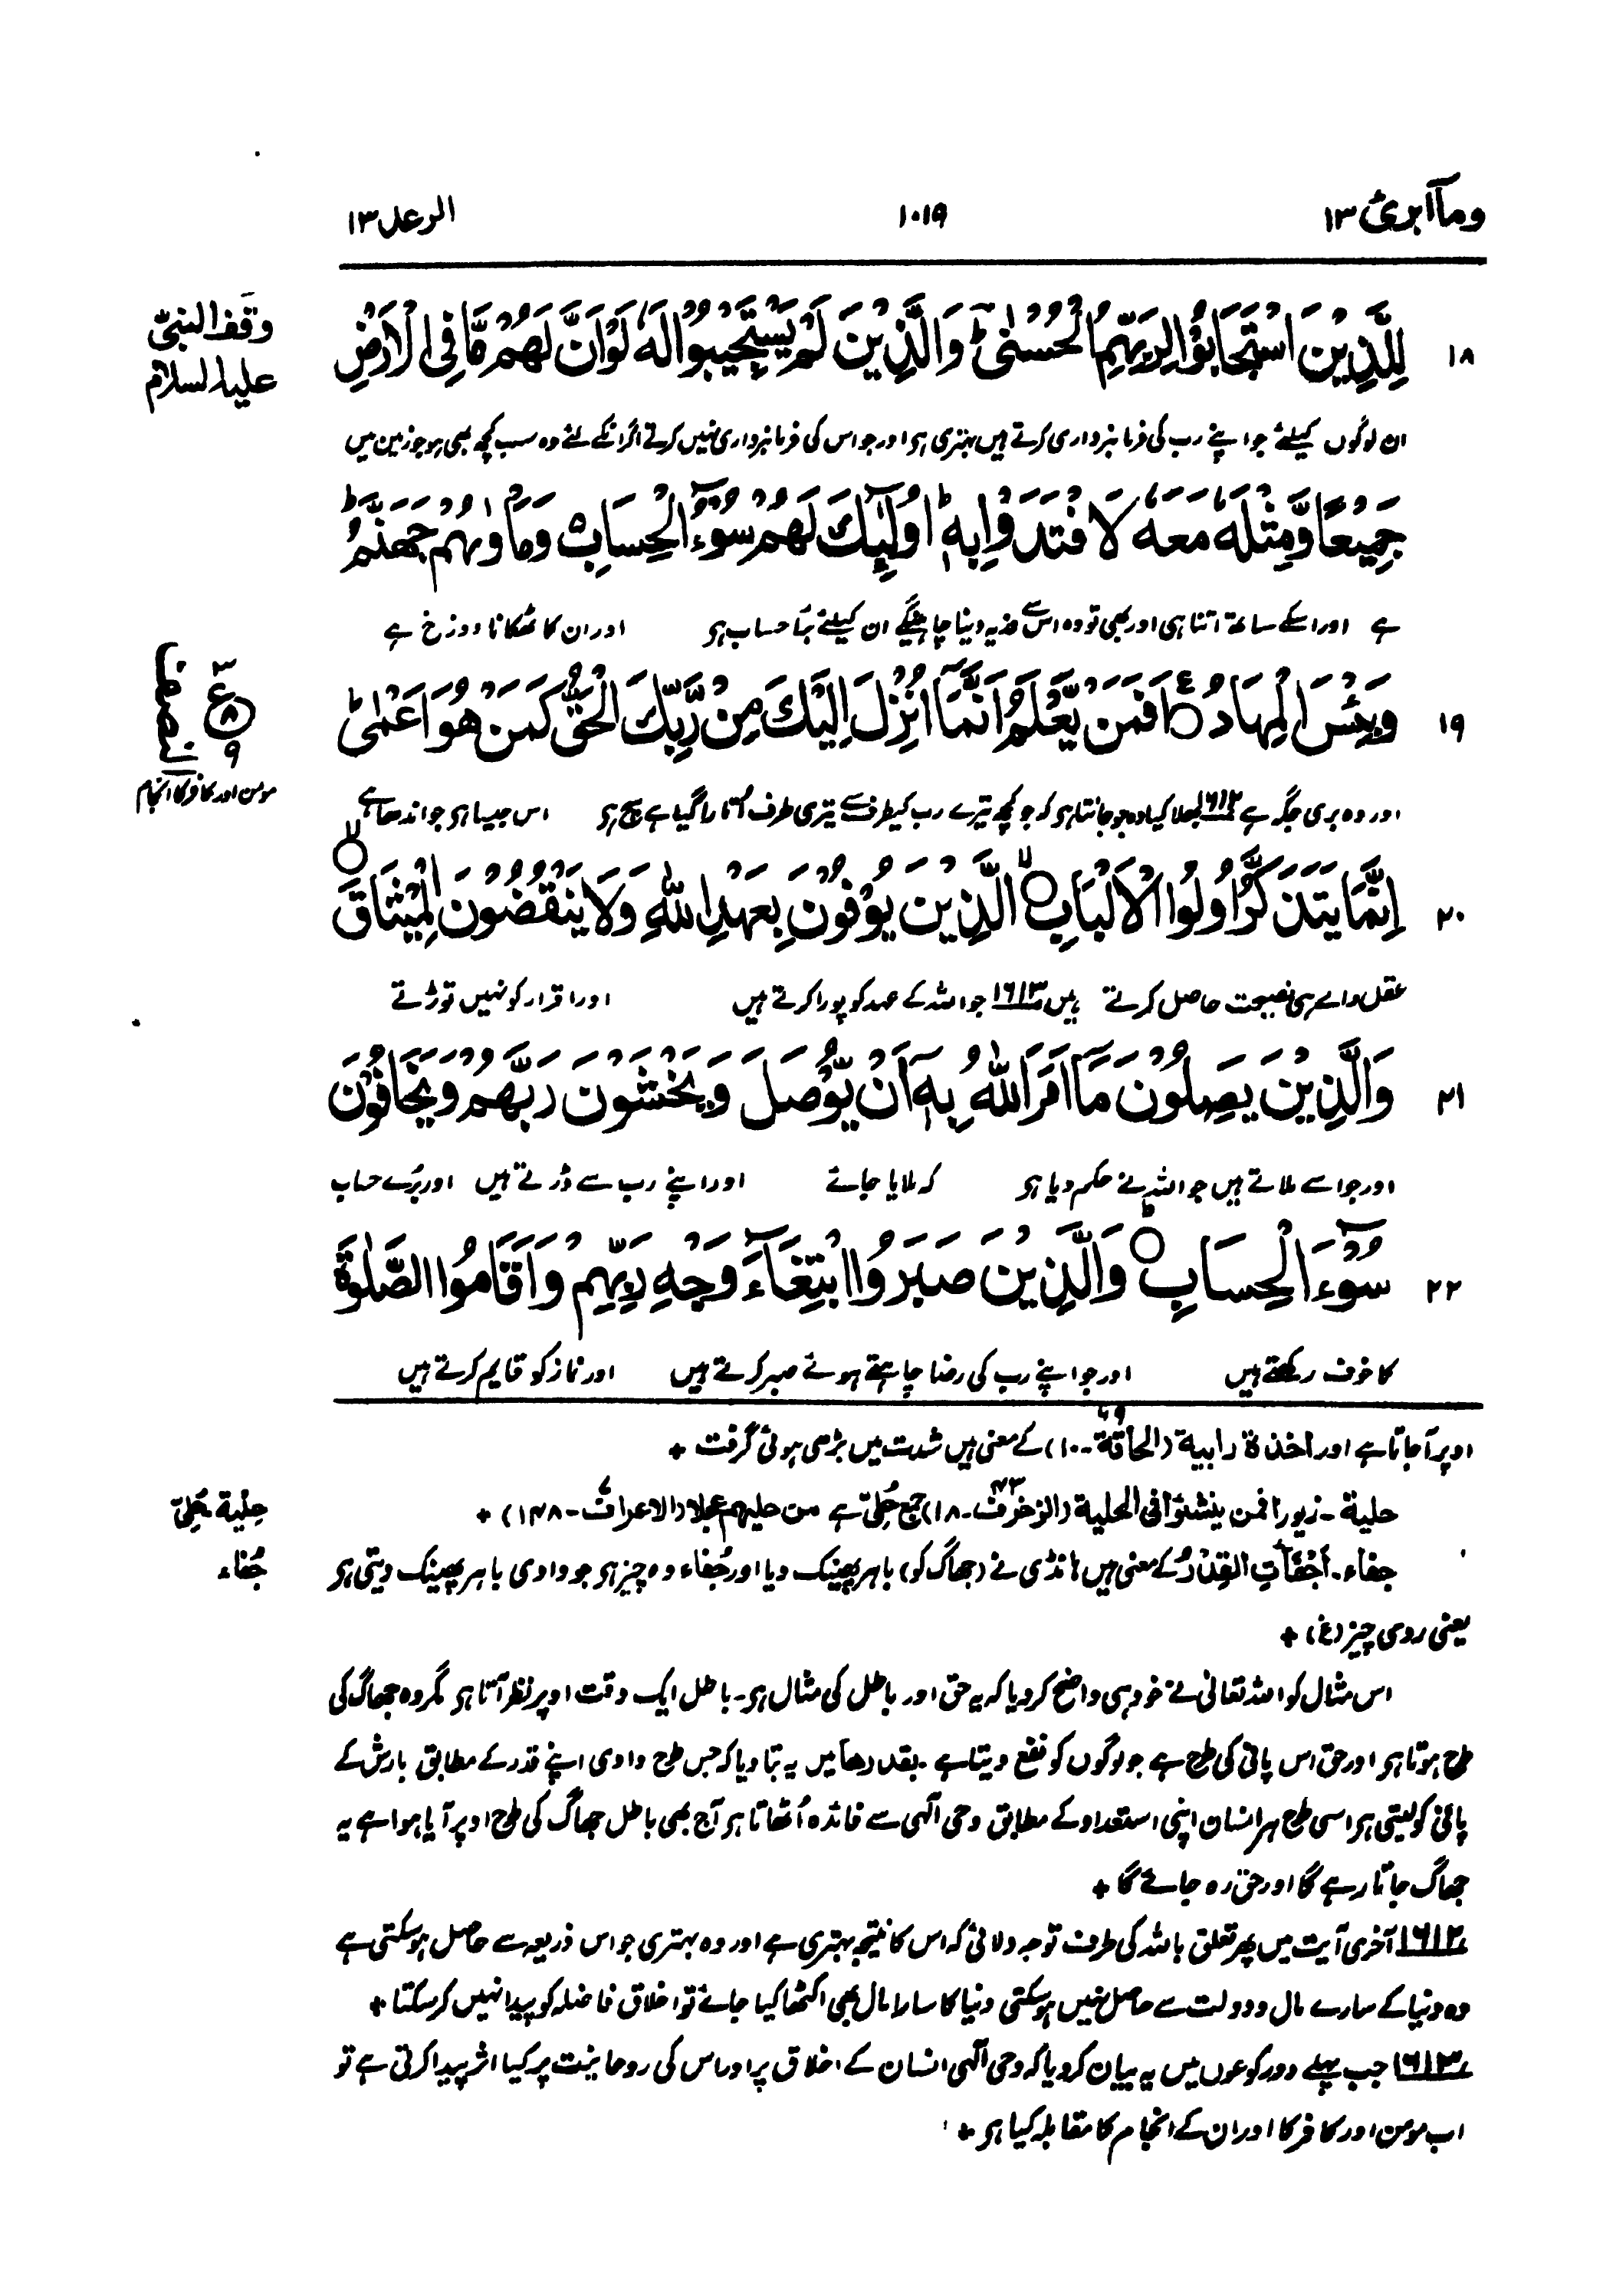 ومآ ابرئ ۱۳
۱۰۱۹
الرعد ۱۳
وقف النبی
علیہ السلام
۱۸ لِلَّذِيْنَ اسْتَجَابُوْا لِرَبِّهِمُ الْحُسْنٰىؕ وَالَّذِيْنَ لَمْ يَسْتَجِيْبُوْا لَهٗ لَوْ اَنَّ لَهُمْ مَّا فِى الْاَرْضِ
ان لوگوں کیلئے جو اپنے رب کی فرمانبرداری کرتے ہیں بہتری ہر اور جو اس کی فرمانبرداری نہیں کرتے اگر انکے لئے وہ سب کچھ بھی ہو جو زمین میں
جَمِيْعًا وَّمِثْلَهٗ مَعَهٗ لَافْتَدَوْا بِهٖؕ اُولٰٓئِكَ لَهُمْ سُوْٓءُ الْحِسَابِ ۙ وَمَاْوٰىهُمْ جَهَنَّمُؕ
ہے اور اسکے ساتھ اتنا ہی اور بھی تو وہ اس سے فدیہ دینا چاہینگے ان کیلئے بُرا حساب ہر اور ان کا ٹھکانا دوزخ ہے
۱۹ وَبِئْسَ الْمِهَادُ ۝ اَفَمَنْ يَّعْلَمُ اَنَّمَاۤ اُنْزِلَ اِلَيْكَ مِنْ رَّبِّكَ الْحَقُّ كَمَنْ هُوَ اَعْمٰىؕ
ع
۸
۹
مومن اور کافر کا انجام
اور وہ بری جگہ ہے ۱۶۱۲ بھلا کیا وہ جو جانتا ہر کہ جو کچھ تیرے رب کیطرف سے تیری طرف اُتارا گیا ہے سچ ہر اس جیسا ہر جو اندھا ہے
۲۰ اِنَّمَا يَتَذَكَّرُ اُولُوا الْاَلْبَابِ ۝ۙ الَّذِيْنَ يُوْفُوْنَ بِعَهْدِ اللّٰهِ وَلَا يَنْقُضُوْنَ الْمِيْثَاقَ ۝ۙ
عقل والے ہی نصیحت حاصل کرتے ہیں ۱۶۱۳ جو اللہ کے عہد کو پورا کرتے ہیں اور اقرار کو نہیں توڑتے
۲۱ وَالَّذِيْنَ يَصِلُوْنَ مَاۤ اَمَرَ اللّٰهُ بِهٖۤ اَنْ يُّوْصَلَ وَيَخْشَوْنَ رَبَّهُمْ وَيَخَافُوْنَ
اور جو اسے ملاتے ہیں جو اللہ نے حکم دیا ہر کہ ملایا جائے اور اپنے رب سے ڈرتے ہیں اور بُرے حساب
۲۲ سُوْٓءَ الْحِسَابِ ۝ؕ وَالَّذِيْنَ صَبَرُوا ابْتِغَآءَ وَجْهِ رَبِّهِمْ وَاَقَامُوا الصَّلٰوةَ
کا خوف رکھتے ہیں اور جو اپنے رب کی رضا چاہتے ہوئے صبر کرتے ہیں اور نماز کو قایم کرتے ہیں
اوپر آجاتا ہے اور اخذة رابیة (الحاقة ۶۹-۱۰) کے معنی ہیں شدت میں بڑھی ہوئی گرفت +
حلیة ـ زیور افمن ینشئوا فی الحلیة (الزخرف ۴۳-۱۸) جمع حُلِیّ ہے من حلیهم عجلا (الاعراف ۷-۱۴۸) +
حِلْیة حُلِیّ
جفاء ـ اَجْفَأَتِ القِدْرُ کے معنی ہیں ہانڈی نے (جھاگ کو) باہر پھینک دیا اور جُفاء وہ چیز ہر جو وادی باہر پھینک دیتی ہر
جُفاء
یعنی ردی چیز (غ) +
اس مثال کو اللہ تعالیٰ نے خود ہی واضح کردیا کہ یہ حق اور باطل کی مثال ہر۔ باطل ایک وقت اوپر نظر آتا ہر مگر وہ جھاگ کی
طرح ہوتا ہر اور حق اس پانی کی طرح ہے جو لوگوں کو نفع دیتا ہے۔ بقدرھا میں یہ بتا دیا کہ جس طرح وادی اپنے قدر کے مطابق بارش کے
پانی کو لیتی ہر اسی طرح ہر انسان اپنی استعداد کے مطابق وحی الٰہی سے فائدہ اُٹھاتا ہر آج بھی باطل جھاگ کی طرح اوپر آیا ہوا ہے یہ
جھاگ جاتا رہے گا اور حق رہ جائے گا +
۱۶۱۲ آخری آیت میں پھر تعلق باللہ کی طرف توجہ دلائی کہ اس کا نتیجہ بہتری ہے اور وہ بہتری جو اس ذریعہ سے حاصل ہوسکتی ہے
وہ دنیا کے سارے مال و دولت سے حاصل نہیں ہوسکتی دنیا کا سارا مال بھی اکٹھا کیا جائے تو اخلاق فاضلہ کو پیدا نہیں کرسکتا +
۱۶۱۳ جب پہلے دو رکوعوں میں یہ بیان کردیا کہ وحی الٰہی انسان کے اخلاق پر اور اس کی روحانیت پر کیا اثر پیدا کرتی ہے تو
اب مومن اور کافر کا اور ان کے انجام کا مقابلہ کیا ہر +